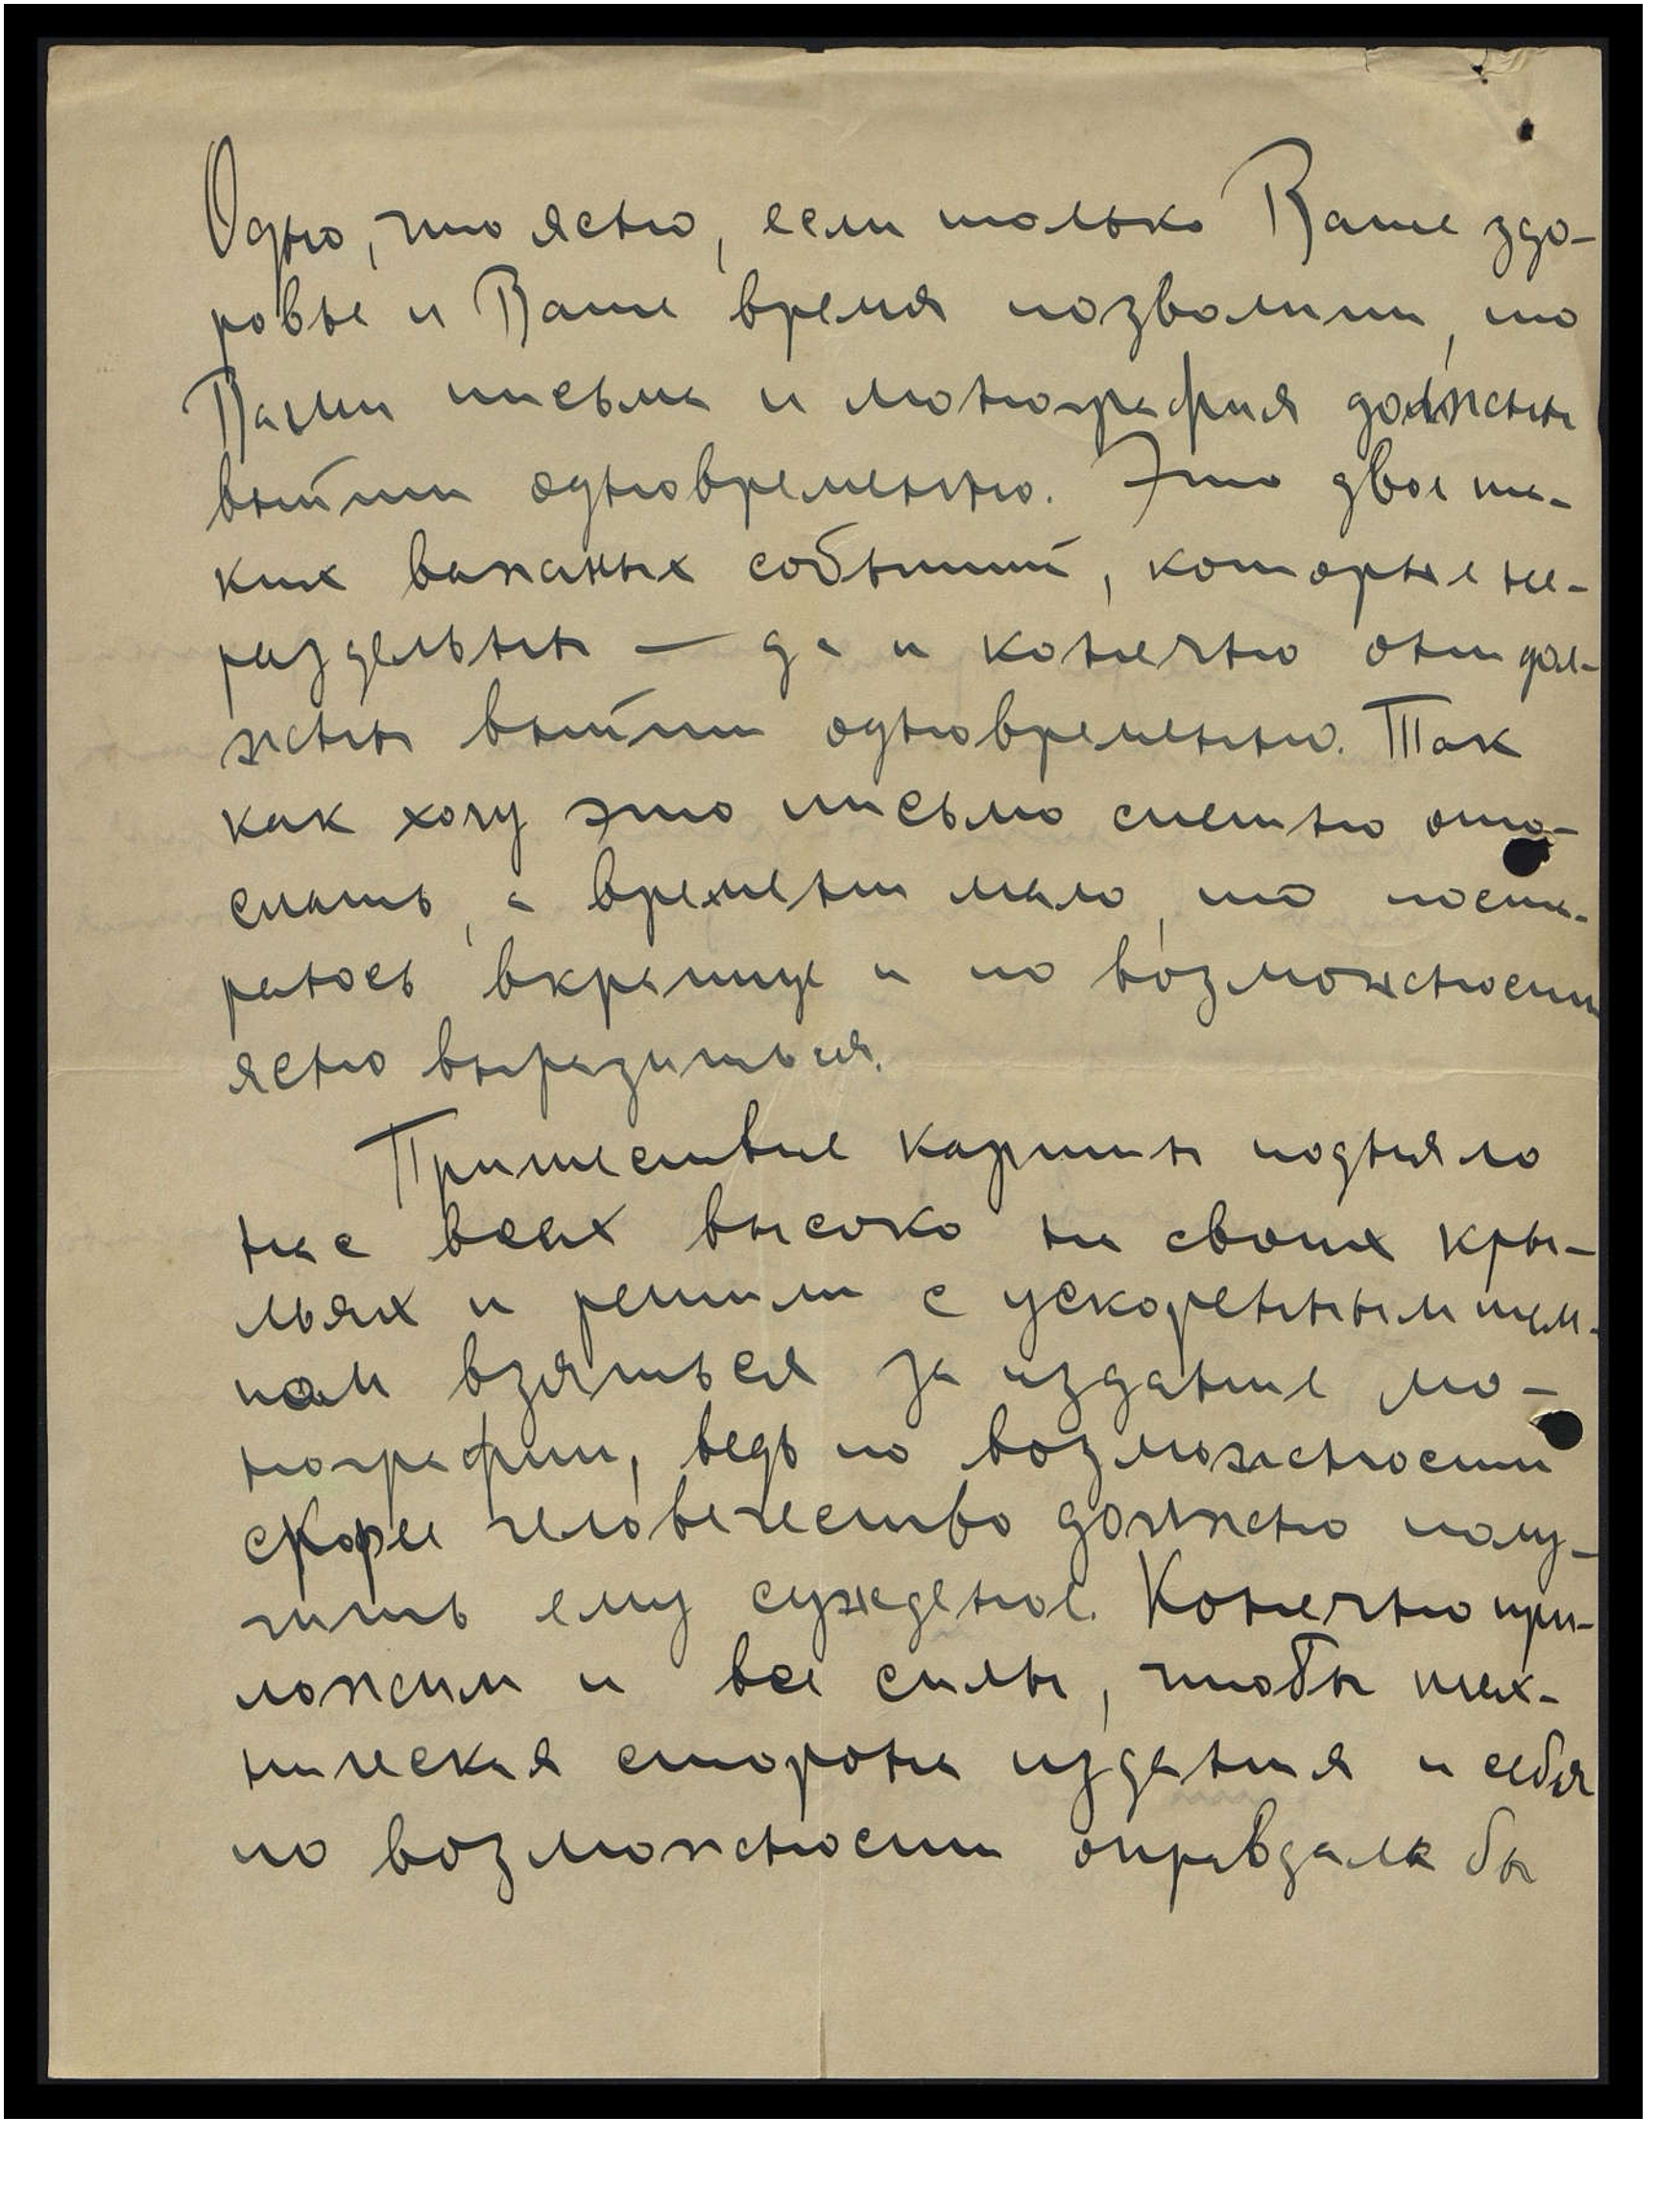 Одно, что ясно, если только Ваше здо-
ровье и Ваше время позволит, то
Ваши письма и монография должны
выйти одновременно. Это двое та-
ких важных событий, которые не-
раздельны — да и конечно они дол-
жны выйти одновременно. Так
как хочу это письмо спешно ото-
слать, а времени мало, то поста-
раюсь вкратце и по возможности
ясно выразиться.
Пришествие картин подняло
нас всех высоко на своих кры-
льях и решили с ускоренным тем-
пом взяться за издание мо-
нографии, ведь по возможности
скорее человечество должно полу-
чить ему сужденое. Конечно при-
ложим и все силы, чтобы тех-
ническая сторона издания и себя
по возможности оправдала бы